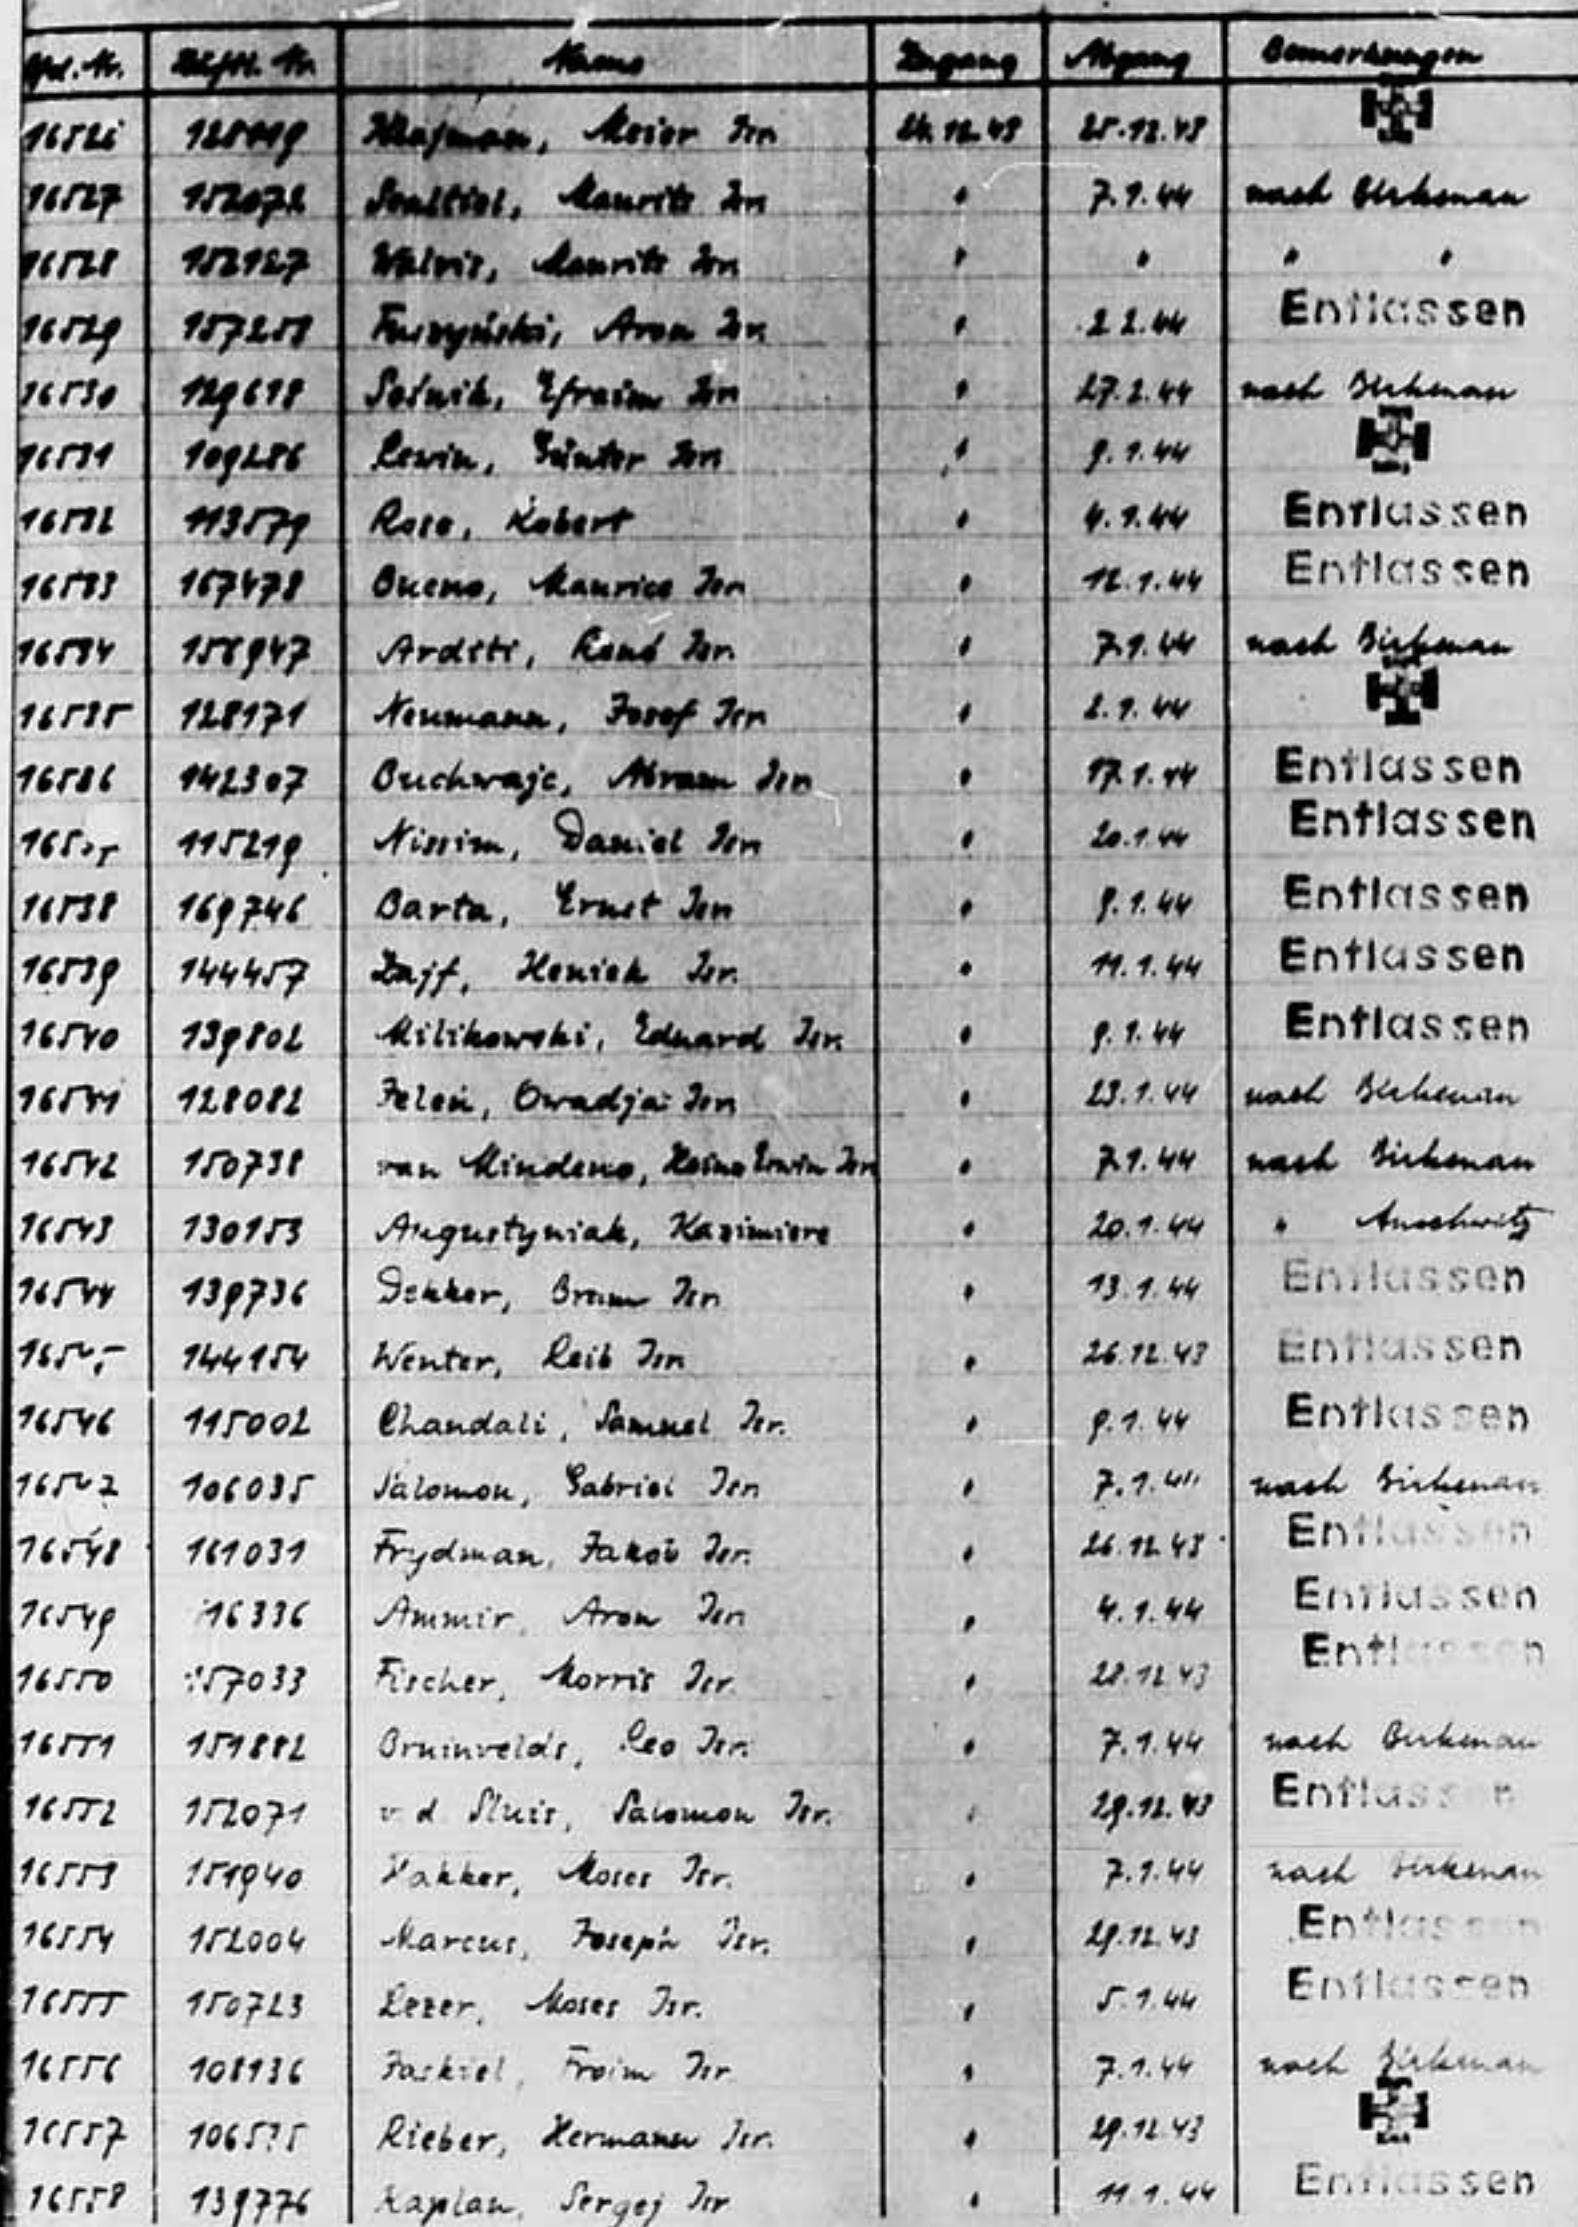 Lfd. Nr. Häftl. Nr. Name Zugang Abgang Bemerkungen
16526 Meier Isr. 24.12.43 25.12.43
16527 152072 Maurits Isr. " 7.1.44 nach Birkenau
16528 152127 Walvis, Maurits Isr. " " " "
16529 157258 Aron Isr. " 2.2.44 Entlassen
16530 129618 Efraim Isr. " 27.2.44 nach Birkenau
16531 109286 Lewin, Günter Isr. " 9.1.44
16532 113579 Rose, Robert " 4.1.44 Entlassen
16533 167478 Bueno, Maurice Isr. " 12.1.44 Entlassen
16534 158947 Arditti, René Isr. " 7.1.44 nach Birkenau
16535 128171 Neumann, Josef Isr. " 2.1.44
16536 142307 Buchwajc, Abram Isr. " 17.1.44 Entlassen
115219 Nissim, Daniel Isr. " 20.1.44 Entlassen
16538 169746 Barta, Ernst Isr. " 9.1.44 Entlassen
16539 144457 Zajf, Heniek Isr. " 11.1.44 Entlassen
16540 139802 Milikowski, Eduard Isr. " 9.1.44 Entlassen
16541 128082 Isr. " 23.1.44 nach Birkenau
16542 150738 van Mindeno, Heinz Erwin Isr. " 7.1.44 nach Birkenau
16543 130153 Augustyniak, Kazimierz " 20.1.44 " Auschwitz
16544 139736 Dekker, Bram Isr. " 13.1.44 Entlassen
144154 Wenter, Leib Isr. " 26.12.43 Entlassen
16546 115002 Chandali, Samuel Isr. " 9.1.44 Entlassen
16547 106035 Salomon, Gabriel Isr. " 7.1.44 nach Birkenau
16548 161031 Frydman, Jakob Isr. " 26.12.43 Entlassen
16549 16336 Ammir, Aron Isr. " 4.1.44 Entlassen
16550 157033 Fischer, Morris Isr. " 28.12.43 Entlassen
16551 151882 Bruinvelds, Leo Isr. " 7.1.44 nach Birkenau
16552 152071 v. d. Sluis, Salomon Isr. " 29.12.43 Entlassen
16553 151940 Hakker, Moses Isr. " 7.1.44 nach Birkenau
16554 152004 Marcus, Joseph Isr. " 29.12.43 Entlassen
16555 150723 Lezer, Moses Isr. " 5.1.44 Entlassen
16556 108136 Jaskiel, Froim Isr. " 7.1.44 nach Birkenau
16557 106535 Rieber, Hermann Isr. " 29.12.43
16558 139776 Kaplan, Sergej Isr. " 11.1.44 Entlassen